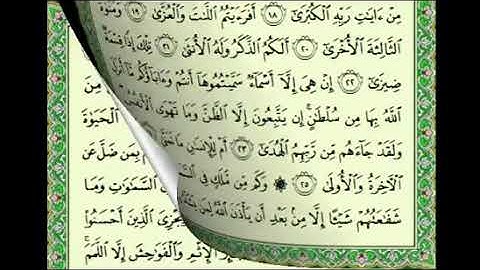 مِنْ ءَايَٰتِ رَبِّهِ ٱلْكُبْرَىٰٓ ١٨ أَفَرَءَيْتُمُ ٱللَّٰتَ وَٱلْعُزَّىٰ ١٩ وَمَنَوٰةَ
ٱلثَّالِثَةَ ٱلْأُخْرَىٰٓ ٢٠ أَلَكُمُ ٱلذَّكَرُ وَلَهُ ٱلْأُنثَىٰ ٢١ تِلْكَ إِذًا قِسْمَةٌ
ضِيزَىٰٓ ٢٢ إِنْ هِىَ إِلَّآ أَسْمَآءٌ سَمَّيْتُمُوهَآ أَنتُمْ وَءَابَآؤُكُم مَّآ أَنزَلَ
ٱللَّهُ بِهَا مِن سُلْطَٰنٍ ۚ إِن يَتَّبِعُونَ إِلَّا ٱلظَّنَّ وَمَا تَهْوَى ٱلْأَنفُسُ ۖ ٱلْحَيَوٰةَ
وَلَقَدْ جَآءَهُم مِّن رَّبِّهِمُ ٱلْهُدَىٰٓ ٢٣ أَمْ لِلْإِنسَٰنِ مَا تَمَنَّىٰ بِمَن ضَلَّ عَن
ٱلْءَاخِرَةُ وَٱلْأُولَىٰ ٢٥ وَكَم مِّن مَّلَكٍ فِى ٱلسَّمَٰوَٰتِ وَمَا
شَفَٰعَتُهُمْ شَيْـًٔا إِلَّا مِنۢ بَعْدِ أَن يَأْذَنَ ٱللَّهُ لِمَن يَجْزِىَ ٱلَّذِينَ أَحْسَنُوا۟
ٱلْإِثْمِ وَٱلْفَوَٰحِشَ إِلَّا ٱللَّمَمَ ۚ